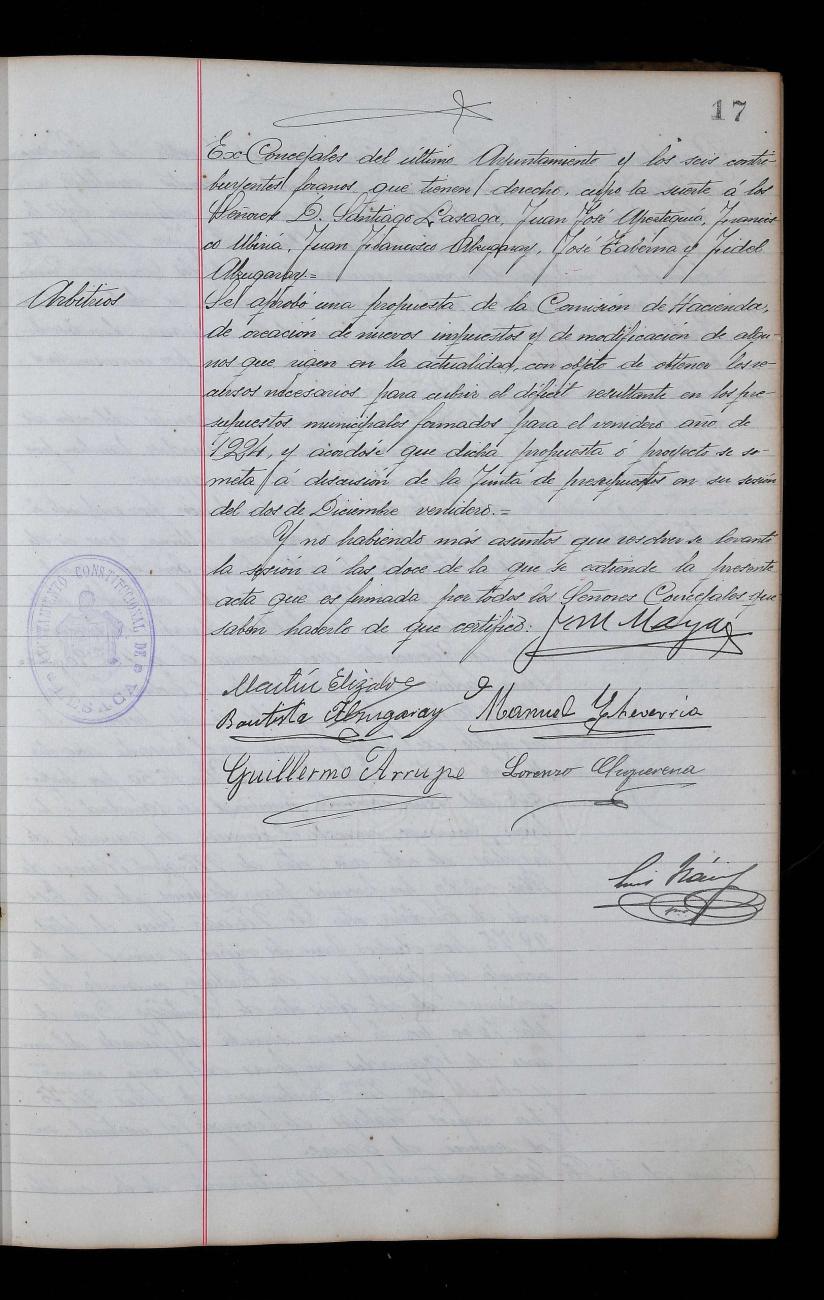 17
Ex-Concejales del último Ayuntamiento y los seis contri-
buyentes foranos que tienen derecho, cupo la suerte á los
Señores D. Santiago Lasaga, Juan José Apeztegui, Francis-
co Ubiria, Juan Francisco Alzugaray, José Taberna y Fidel
Alzugaray.=
Arbitrios
Se aprobó una propuesta de la Comisión de Hacienda,
de creacion de nuevos impuestos y de modificación de algu-
nos que rigen en la actualidad, con objeto de obtener los re-
cursos necesarios para cubrir el déficit resultante en los pre-
supuestos municipales formados para el venidero año de
1924, y acordóse que dicha propuesta ó proyecto se so-
meta á discusión de la Junta de presupuestos en su sesión
del dos de Diciembre venidero.=
Y no habiendo más asuntos que resolver se levantó
la sesión á las doce de la que se extiende la presente
acta que es firmada por todos los Señores Concejales que
saben hacerlo de que certifico.
J M Maya
AYUNTAMIENTO CONSTITUCIONAL DE LESACA
Martín Elizalde
Bautista Alzugaray
Manuel Echeverria
Guillermo Arrupe
Lorenzo
Luis